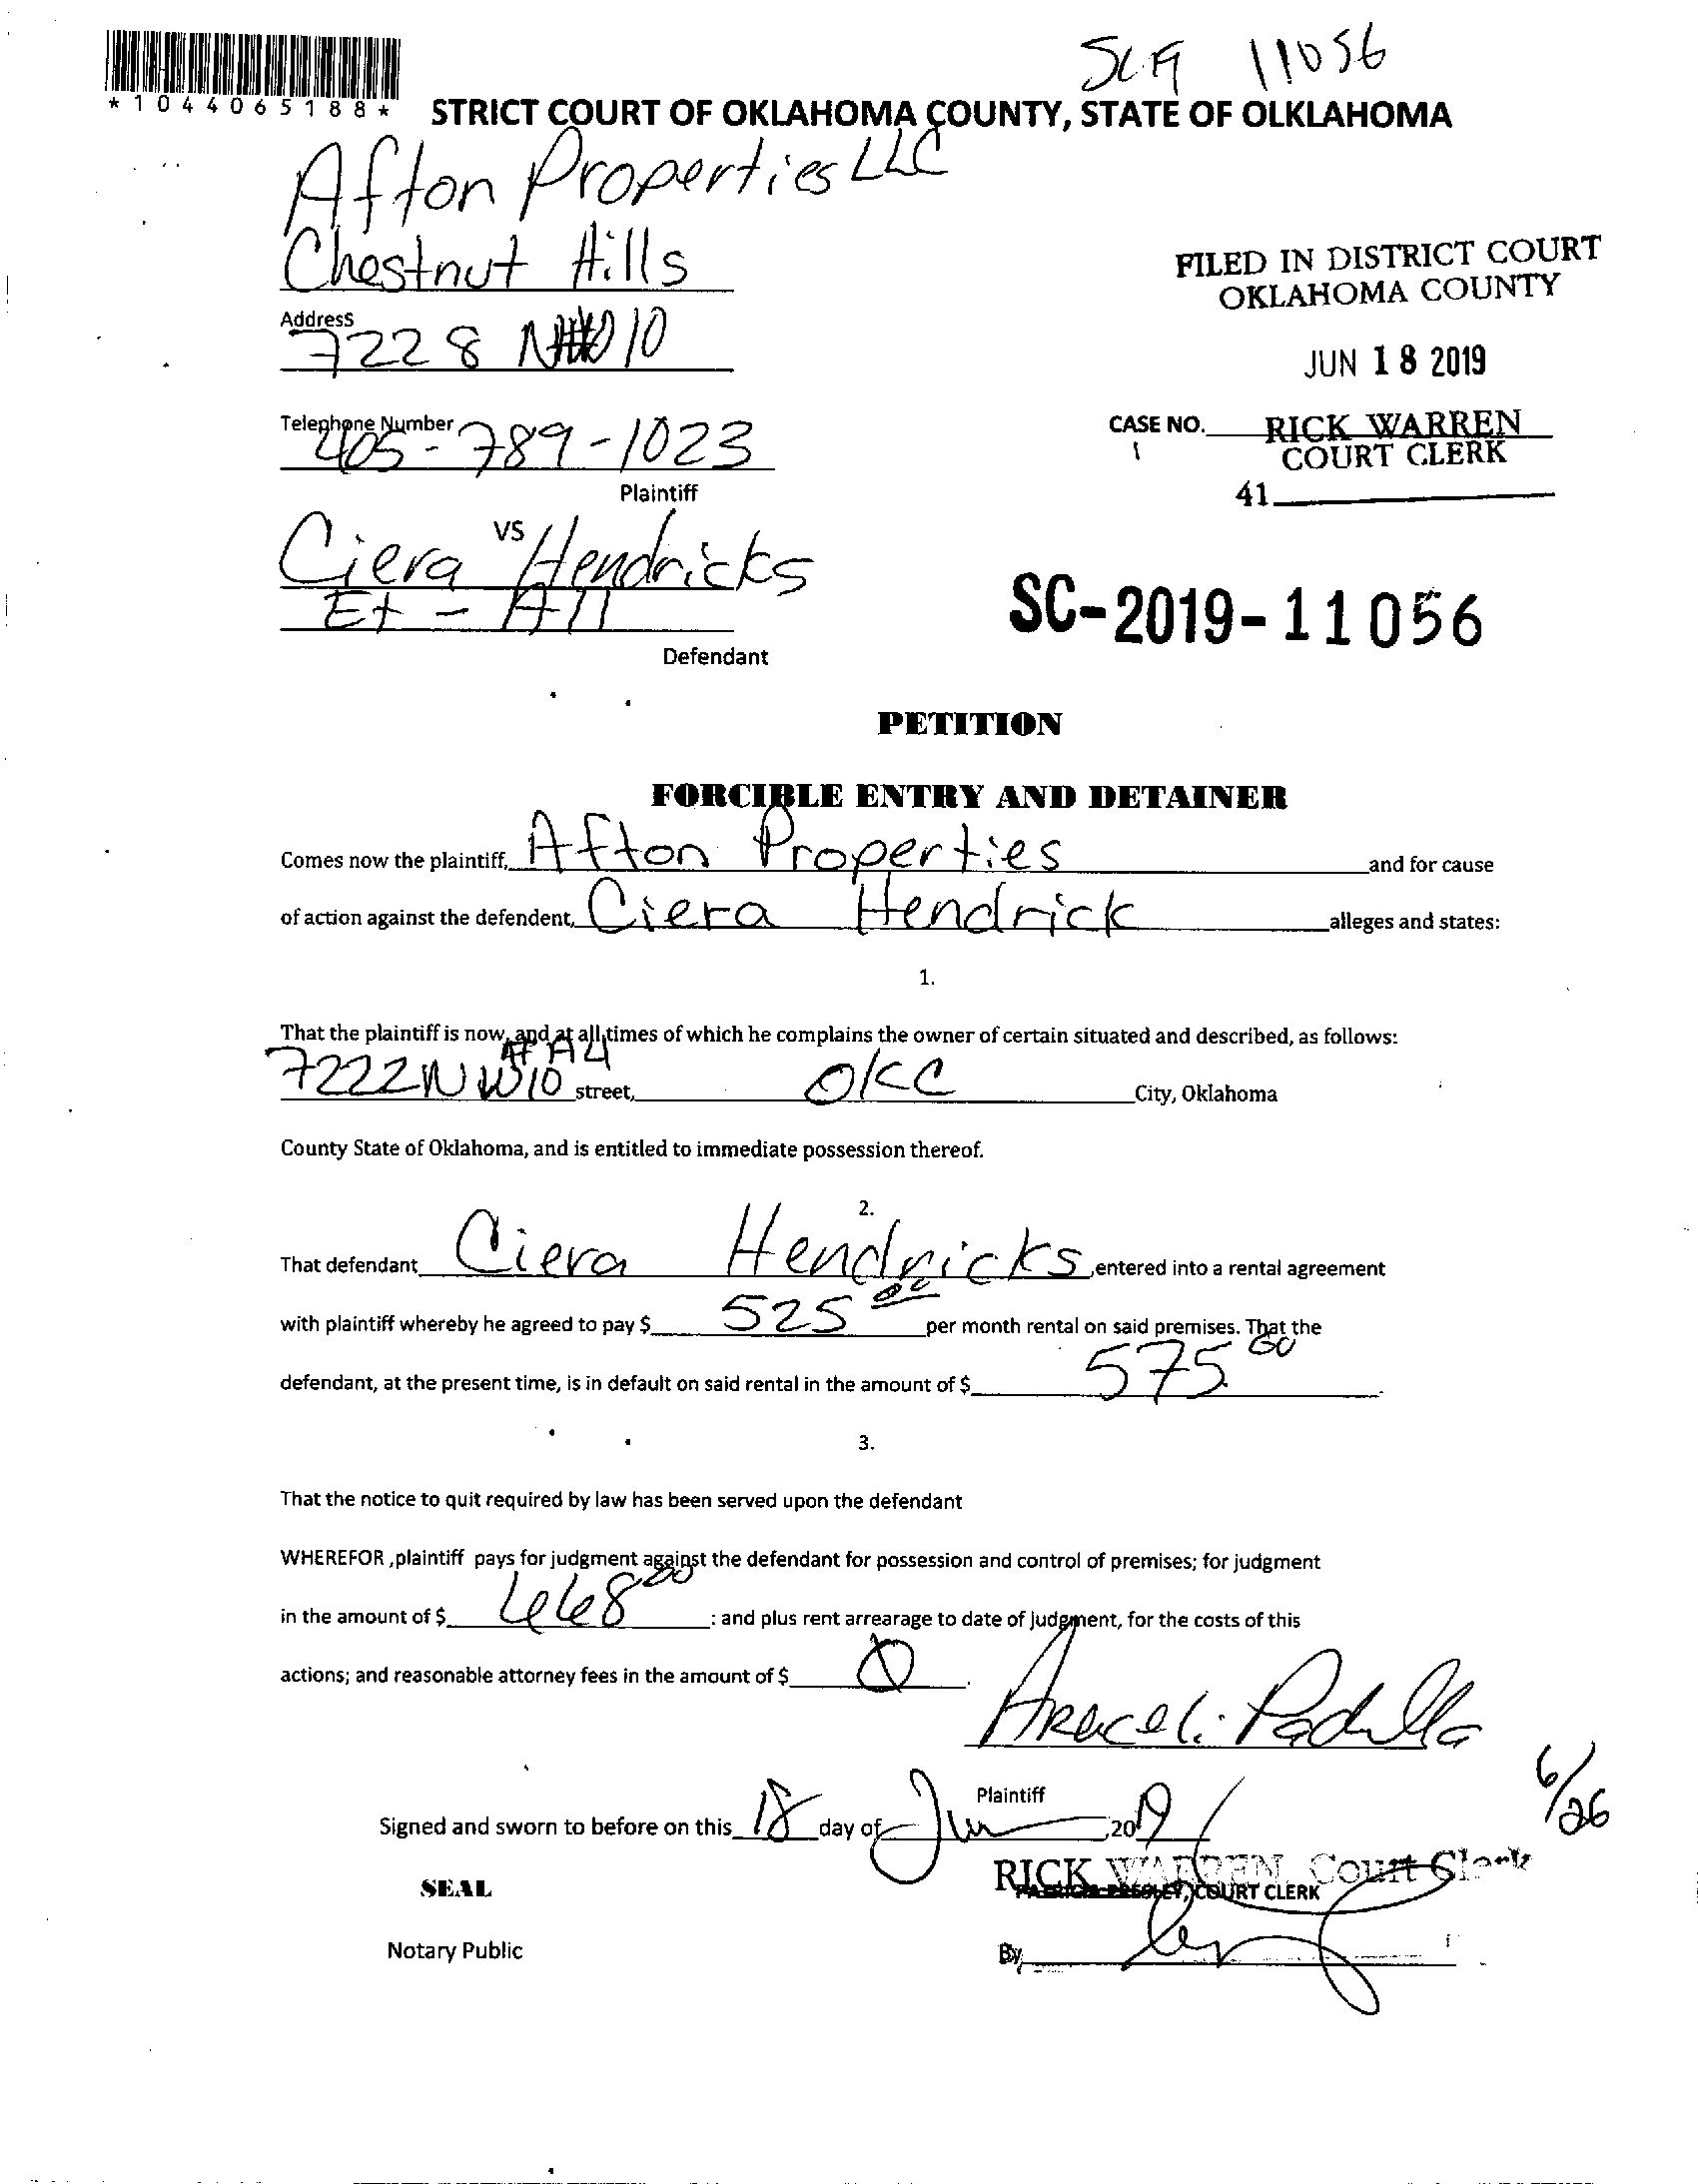 SC19 11056
*1044065188*
STRICT COURT OF OKLAHOMA COUNTY, STATE OF OLKLAHOMA
Afton Properties LLC
Chestnut Hills
FILED IN DISTRICT COURT
OKLAHOMA COUNTY
Address
7228 NW 10
JUN 18 2019
Telephone Number
405-789-1023
CASE NO. RICK WARREN
COURT CLERK
Plaintiff
41
VS
Ciera Hendricks
Et - All
SC-2019-11056
Defendant
PETITION
FORCIBLE ENTRY AND DETAINER
Comes now the plaintiff, Afton Properties and for cause
of action against the defendent, Ciera Hendrick alleges and states:
1.
That the plaintiff is now, and at all times of which he complains the owner of certain situated and described, as follows:
7222 NW 10 # A4 street, OKC City, Oklahoma
County State of Oklahoma, and is entitled to immediate possession thereof.
2.
That defendant Ciera Hendricks ,entered into a rental agreement
with plaintiff whereby he agreed to pay $ 525 00 per month rental on said premises. That the
defendant, at the present time, is in default on said rental in the amount of $ 575 00.
3.
That the notice to quit required by law has been served upon the defendant
WHEREFOR ,plaintiff pays for judgment against the defendant for possession and control of premises; for judgment
in the amount of $ 668 00 : and plus rent arrearage to date of judgment, for the costs of this
actions; and reasonable attorney fees in the amount of $ 0.
Araceli Padilla
Plaintiff
6/26
Signed and sworn to before on this 18 day of Jun ,2019
RICK WARREN, Court Clerk
SEAL
PATRICIA PRESLEY, COURT CLERK
Notary Public
By